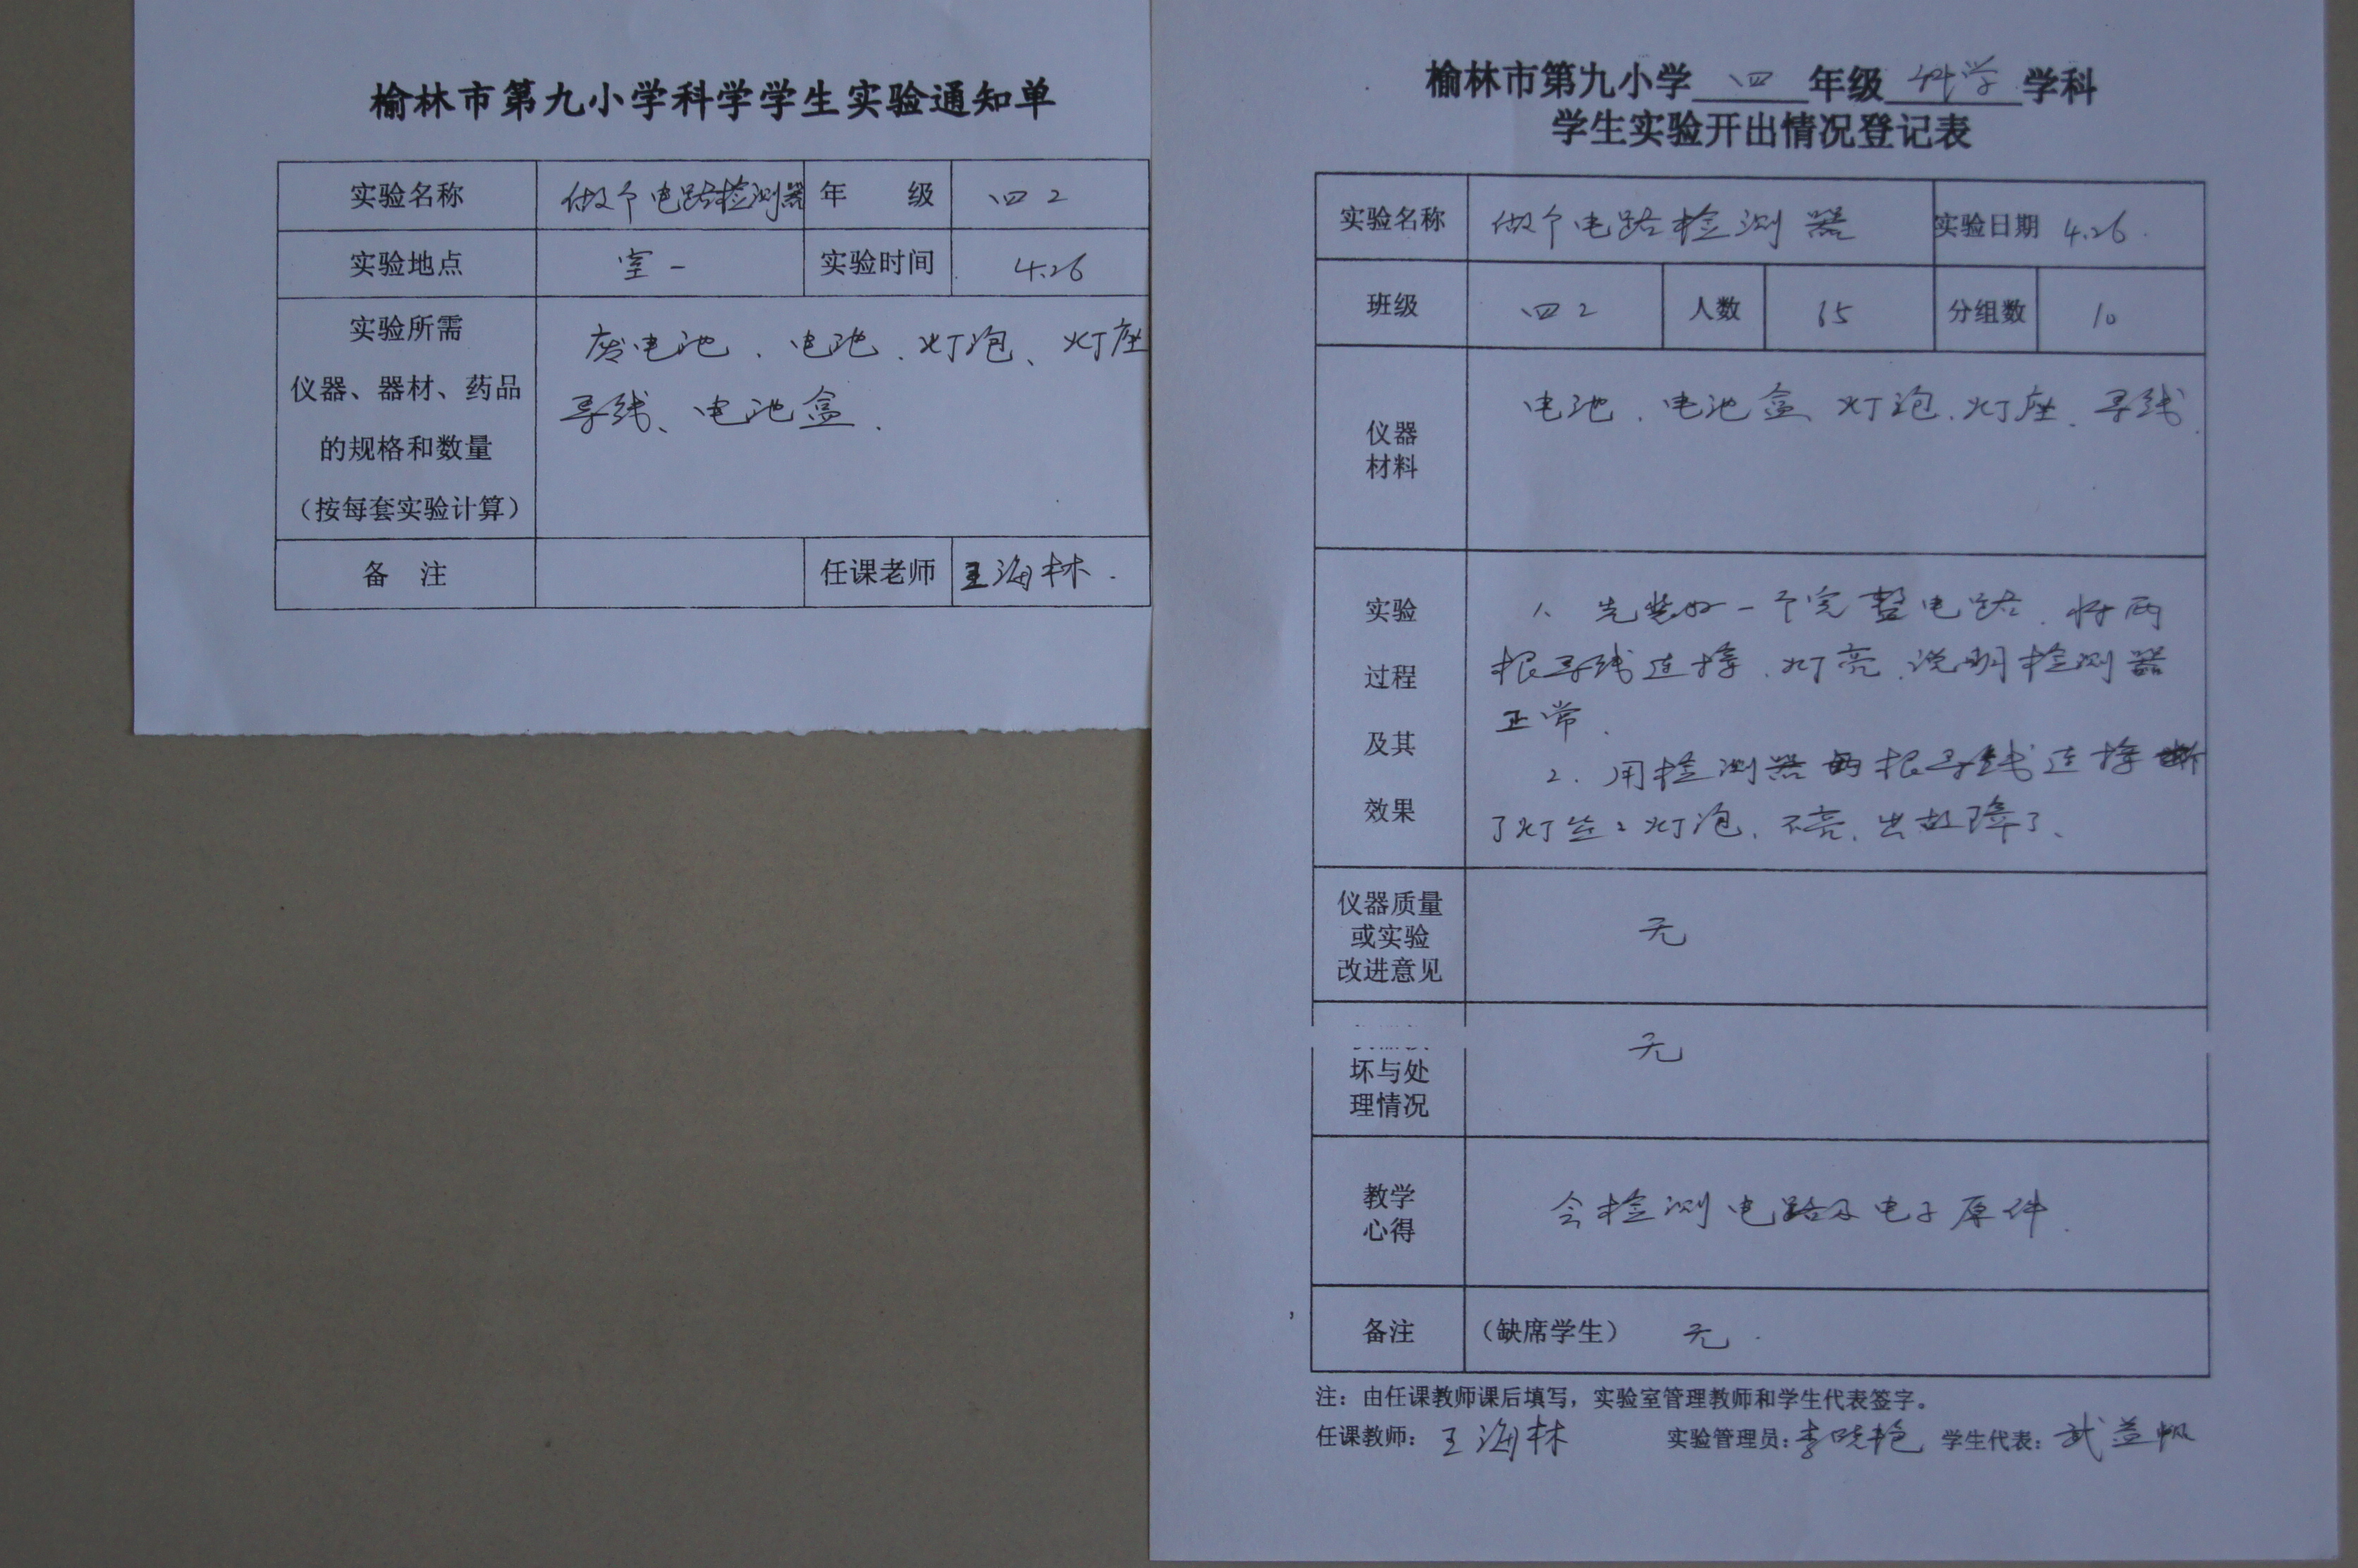 榆林市第九小学科学学生实验通知单
实验名称 做个电路检测器 年 级 四2
实验地点 室一 实验时间 4.26
实验所需
仪器、器材、药品
的规格和数量
（按每套实验计算）
废电池、电池、灯泡、灯座
导线、电池盒.
备 注 任课老师 王海林.
榆林市第九小学 四 年级 科学 学科
学生实验开出情况登记表
实验名称 做个电路检测器 实验日期 4.26.
班级 四2 人数 65 分组数 10
仪器
材料
电池、电池盒、灯泡、灯座、导线.
实验
过程
及其
效果
1、先装好一个完整电路.将两
根导线连接、灯亮、说明检测器
正常.
2.用检测器两根导线连接断
了灯丝的灯泡、不亮、出故障了、
仪器质量
或实验
改进意见
无
坏与处
理情况
无
教学
心得
会检测电路及电子原件.
备注 （缺席学生） 无.
注：由任课教师课后填写，实验室管理教师和学生代表签字。
任课教师：王海林 实验管理员：李晓艳 学生代表：武益帆